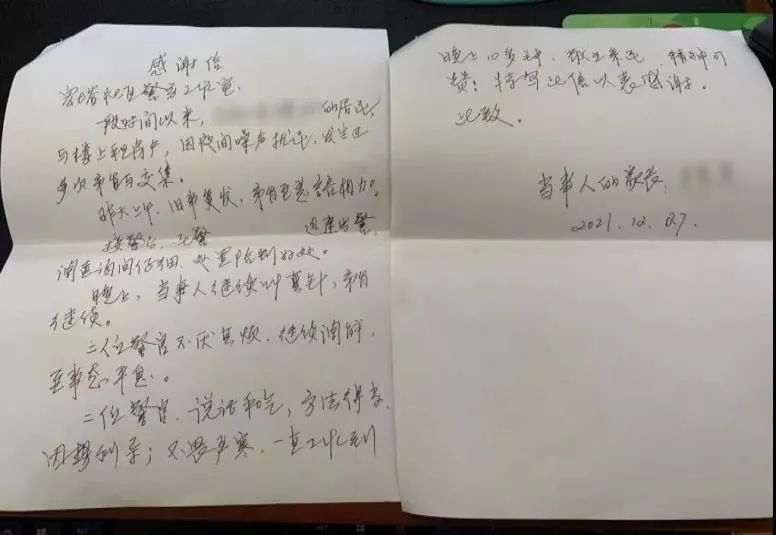 感谢信
社区警务工作室：
一段时间以来， 的居民，
与楼上租房户，因夜间噪声扰民，发生过
多次争吵与交集。
昨天上午，旧事复发，争吵至恶语相加。
接警后，民警 迅速出警，
调查询问仔细，处置恰到好处。
晚上，当事人继续叫真针，争吵
继续。
二位警官不厌其烦，继续调解，
至事态平息。
二位警官，说话和气，方法得当，
因势利导；不畏严寒，一直工作到
晚上10多钟，敬业乐民，精神可
贵；特写此信以表感谢。
此致。
当事人的家长：
2021.12.07.